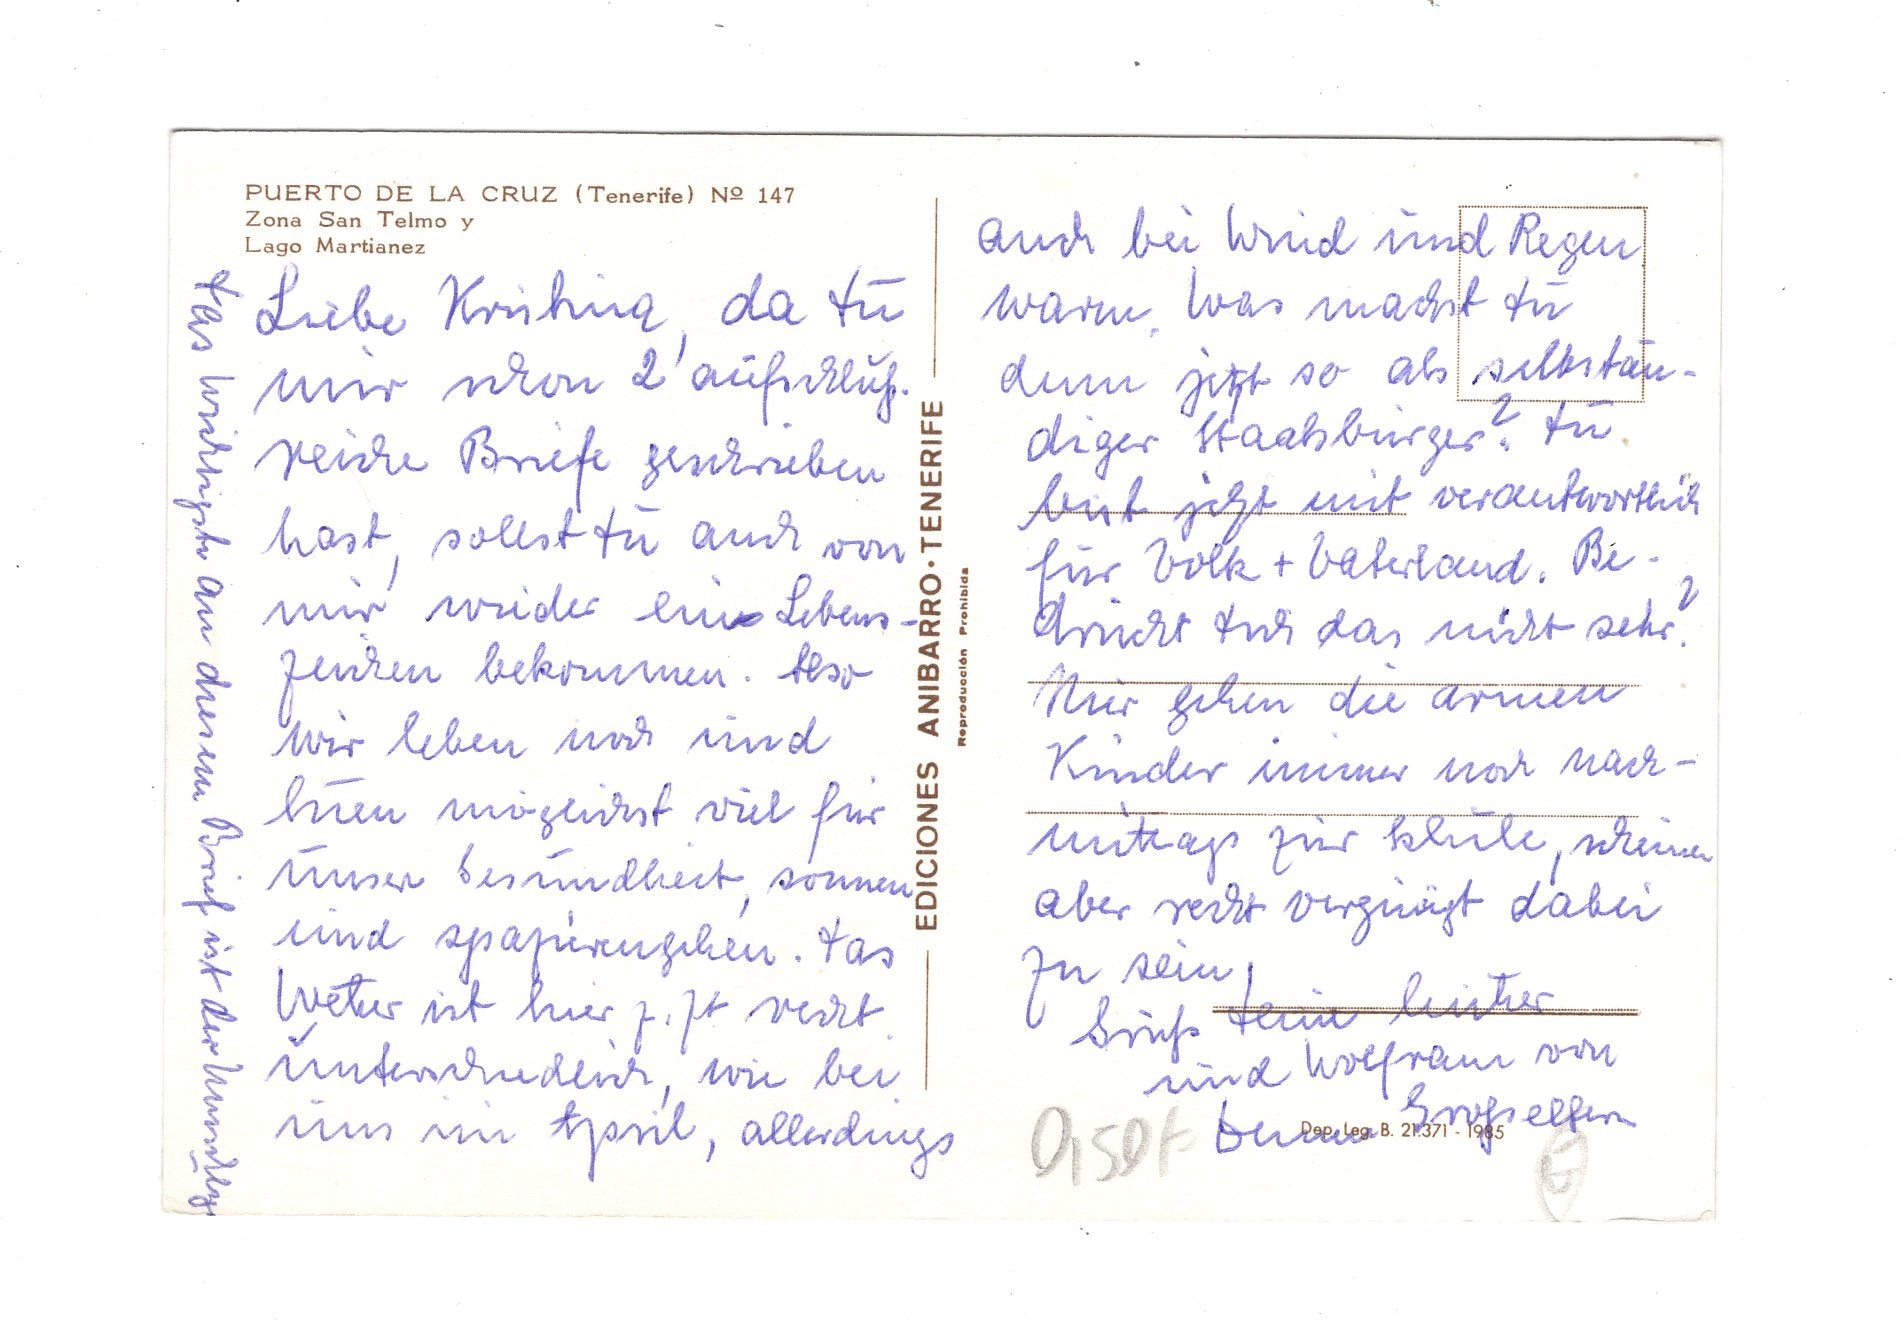 PUERTO DE LA CRUZ (Tenerife) Nº 147
Zona San Telmo y
Lago Martianez
Liebe Kristina, da Du
mir schon 2 aufschluß-
reiche Briefe geschrieben
hast, sollst Du auch von
mir wieder ein Lebens-
zeichen bekommen. Also
wir leben noch und
tuen möglichst viel für
unser Gesundheit, sonnen
und spazierengehen. Das
Wetter ist hier z. Zt recht
unterschiedlich, wie bei
uns im April, allerdings
Das Wichtigste an diesem Brief ist der Umschlag
EDICIONES ANIBARRO · TENERIFE
Reproducción Prohibida
auch bei Wind und Regen
warm. Was machst Du
denn jetzt so als selbstän-
diger Staatsbürger? Du
bist jetzt mit verantwortlich
für Volk + Vaterland. Be-
drückt Dich das nicht sehr?
Hier gehen die armen
Kinder immer noch nach-
mittags zur Schule, scheinen
aber recht vergnügt dabei
zu sein!
Grüß Deine
und Wolfram von
Deinen Großeltern
Dep. Leg. B. 21.371 - 1985
0,50